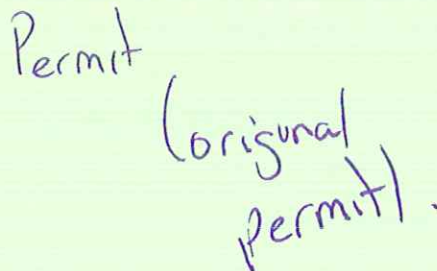 Permit
(original
permit).